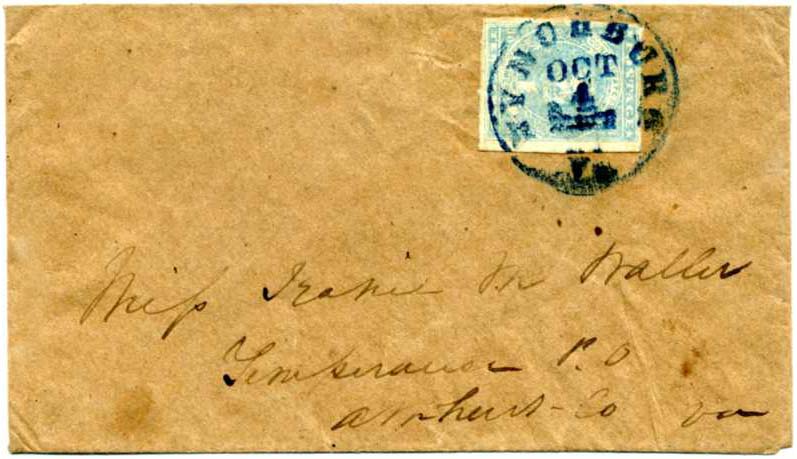 LYNCHBURG
OCT
1
VA
Miss M Waller
Temperance P.O
Amherst Co Va